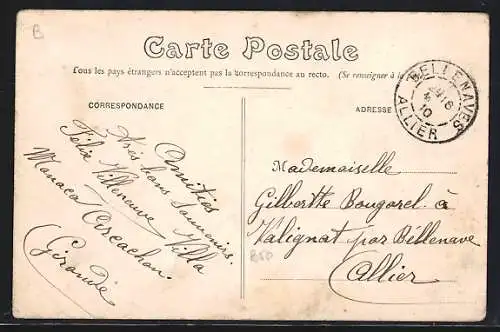 B
Carte Postale
Tous les pays étrangers n'acceptent pas la correspondance au recto. (Se renseigner à la
CORRESPONDANCE
ADRESSE
BELLENAVES
10
ALLIER
Amitiés
très bons souvenirs.
Félix Villeneuve Villa
Monaco Arcachon.
(Gironde)
Mademoiselle
Gilberthe Bougarel à
Valignat par Béllenave
Allier